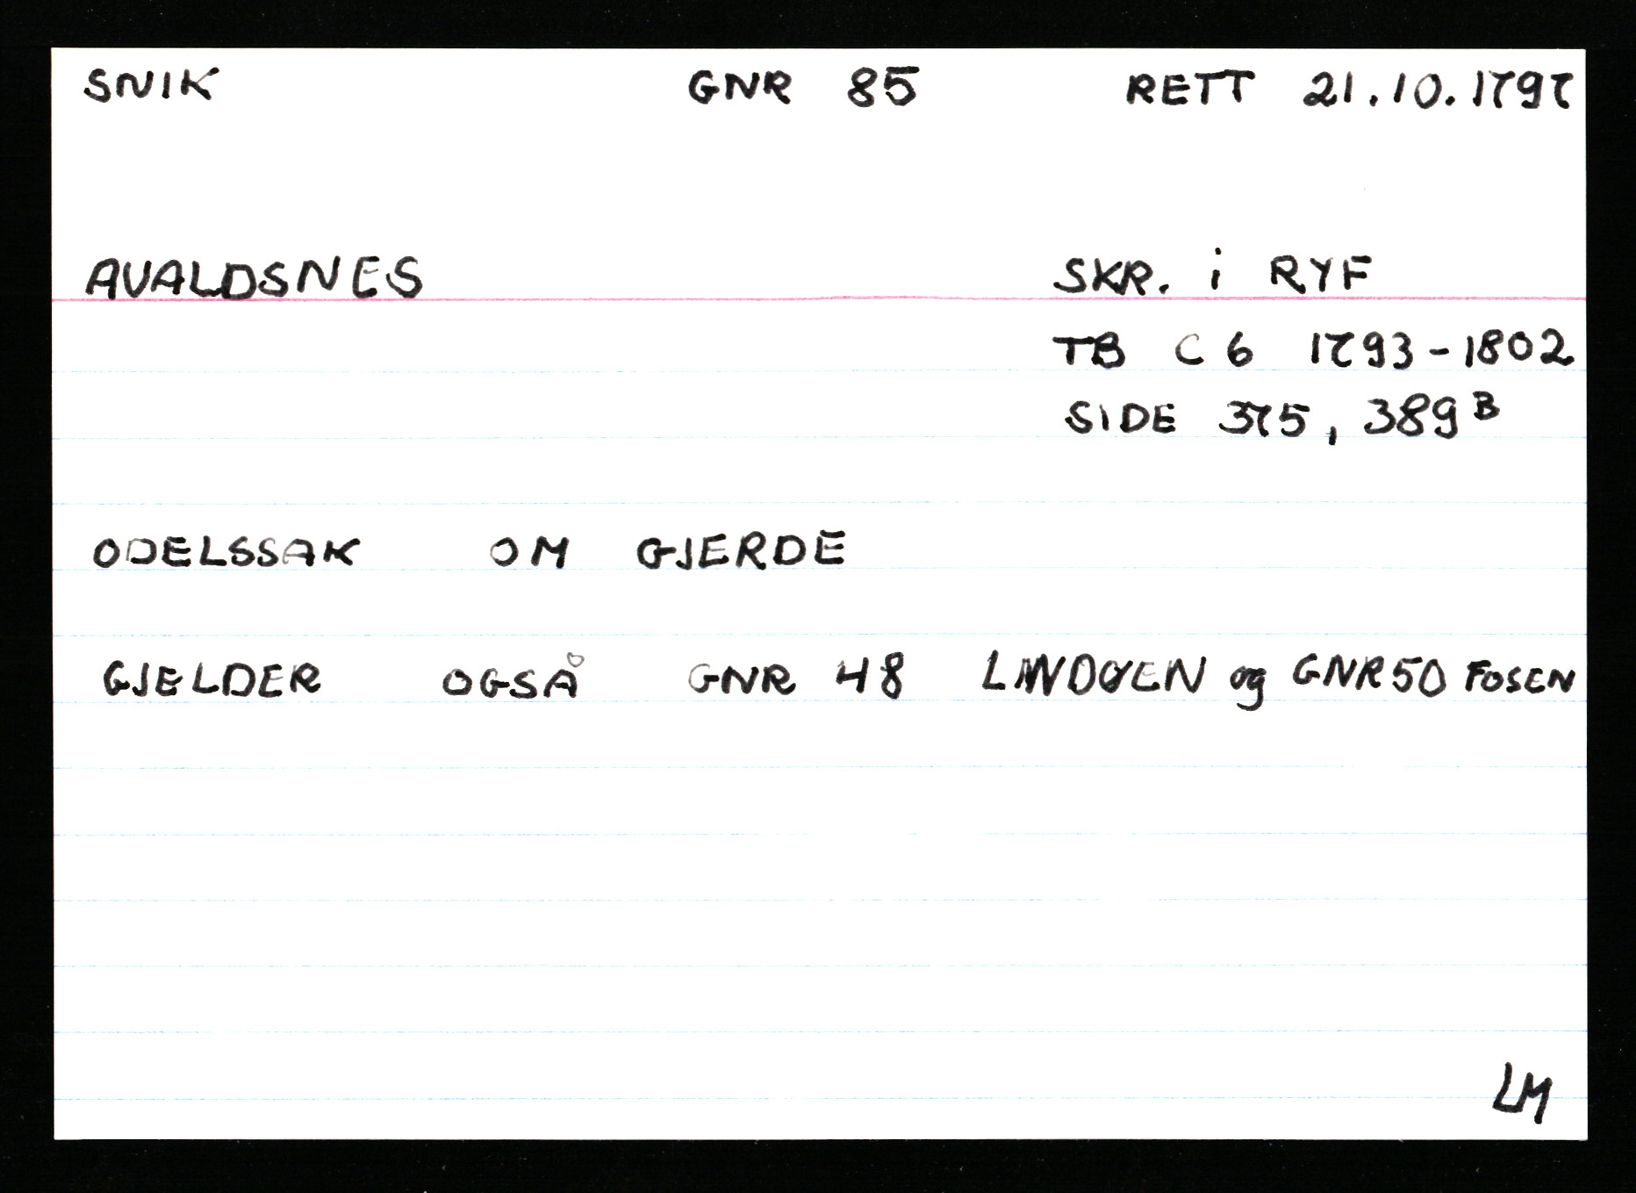 SNIK GNR 85 RETT 21.10.1797
AVALDSNES SKR. i RYF
TB C 6 1793-1802
SIDE 375, 389 B
ODELSSAK OM GJERDE
GJELDER OGSÅ GNR 48 LINDØEN og GNR 50 FOSEN
LM